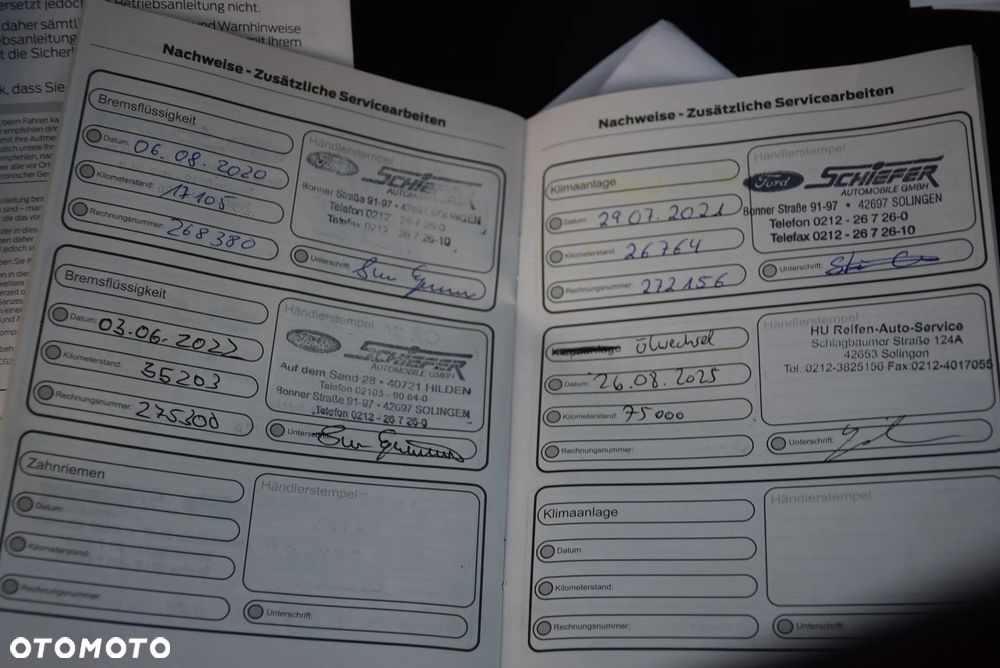 ersetzt jedoch
Betriebsanleitung nicht.
daher sämtl
und Warnhinweise
ebsanleitung
mit Ihrem
t die Sicher
k, dass Sie
Nachweise - Zusätzliche Servicearbeiten
Bremsflüssigkeit
Datum: 06.08.2020
Kilometerstand: 17105
Rechnungsnummer: 268380
Händlerstempel
Ford SCHIEFER
AUTOMOBILE GMBH
Bonner Straße 91-97 • 42697 SOLINGEN
Telefon 0212 - 26 7 26-0
Telefax 0212 - 26 7 26-10
Unterschrift:
Bremsflüssigkeit
Datum: 03.06.2022
Kilometerstand: 35203
Rechnungsnummer: 275300
Händlerstempel
Ford SCHIEFER
AUTOMOBILE GMBH
Auf dem Sand 28 • 40721 HILDEN
Telefon 02103 - 90 64-0
Bonner Straße 91-97 • 42697 SOLINGEN
Telefon 0212 - 26 7 26-0
Unterschrift:
Zahnriemen
Datum:
Kilometerstand:
Rechnungsnummer:
Händlerstempel
Unterschrift:
Nachweise - Zusätzliche Servicearbeiten
Klimaanlage
Datum: 29.07.2021
Kilometerstand: 26764
Rechnungsnummer: 272156
Händlerstempel
Ford SCHIEFER
AUTOMOBILE GMBH
Bonner Straße 91-97 • 42697 SOLINGEN
Telefon 0212 - 26 7 26-0
Telefax 0212 - 26 7 26-10
Unterschrift:
Klimaanlage Ölwechsel
Datum: 26.08.2025
Kilometerstand: 75000
Rechnungsnummer:
Händlerstempel
HU Reifen-Auto-Service
Schlagbaumer Straße 124A
42653 Solingen
Tel.:0212-3825156 Fax:0212-4017055
Unterschrift:
Klimaanlage
Datum:
Kilometerstand:
Rechnungsnummer:
Händlerstempel
Unterschrift:
OTOMOTO